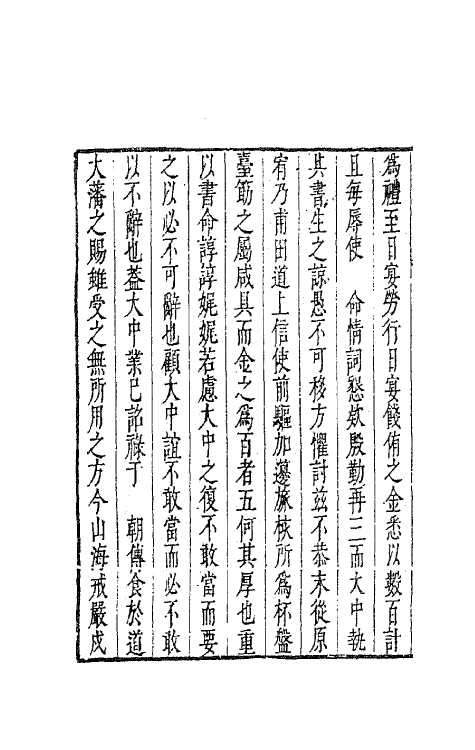 爲禮至日宴勞行日宴餞侑之金悉以數百計
且每辱使　命情詞懇欵殷勤再三而大中執
其書生之諒愚不可移方懼討玆不恭末從原
宥乃甫田道上信使前驅加籩旅核所爲杯盤
臺篚之屬咸具而金之爲百者五何其厚也重
以書命諄諄娓娓若慮大中之復不敢當而要
之以必不可辭也顧大中誼不敢當而必不敢
以不辭也葢大中業已詔祿于　朝傳食於道
大藩之賜雖受之無所用之方今山海戒嚴戍